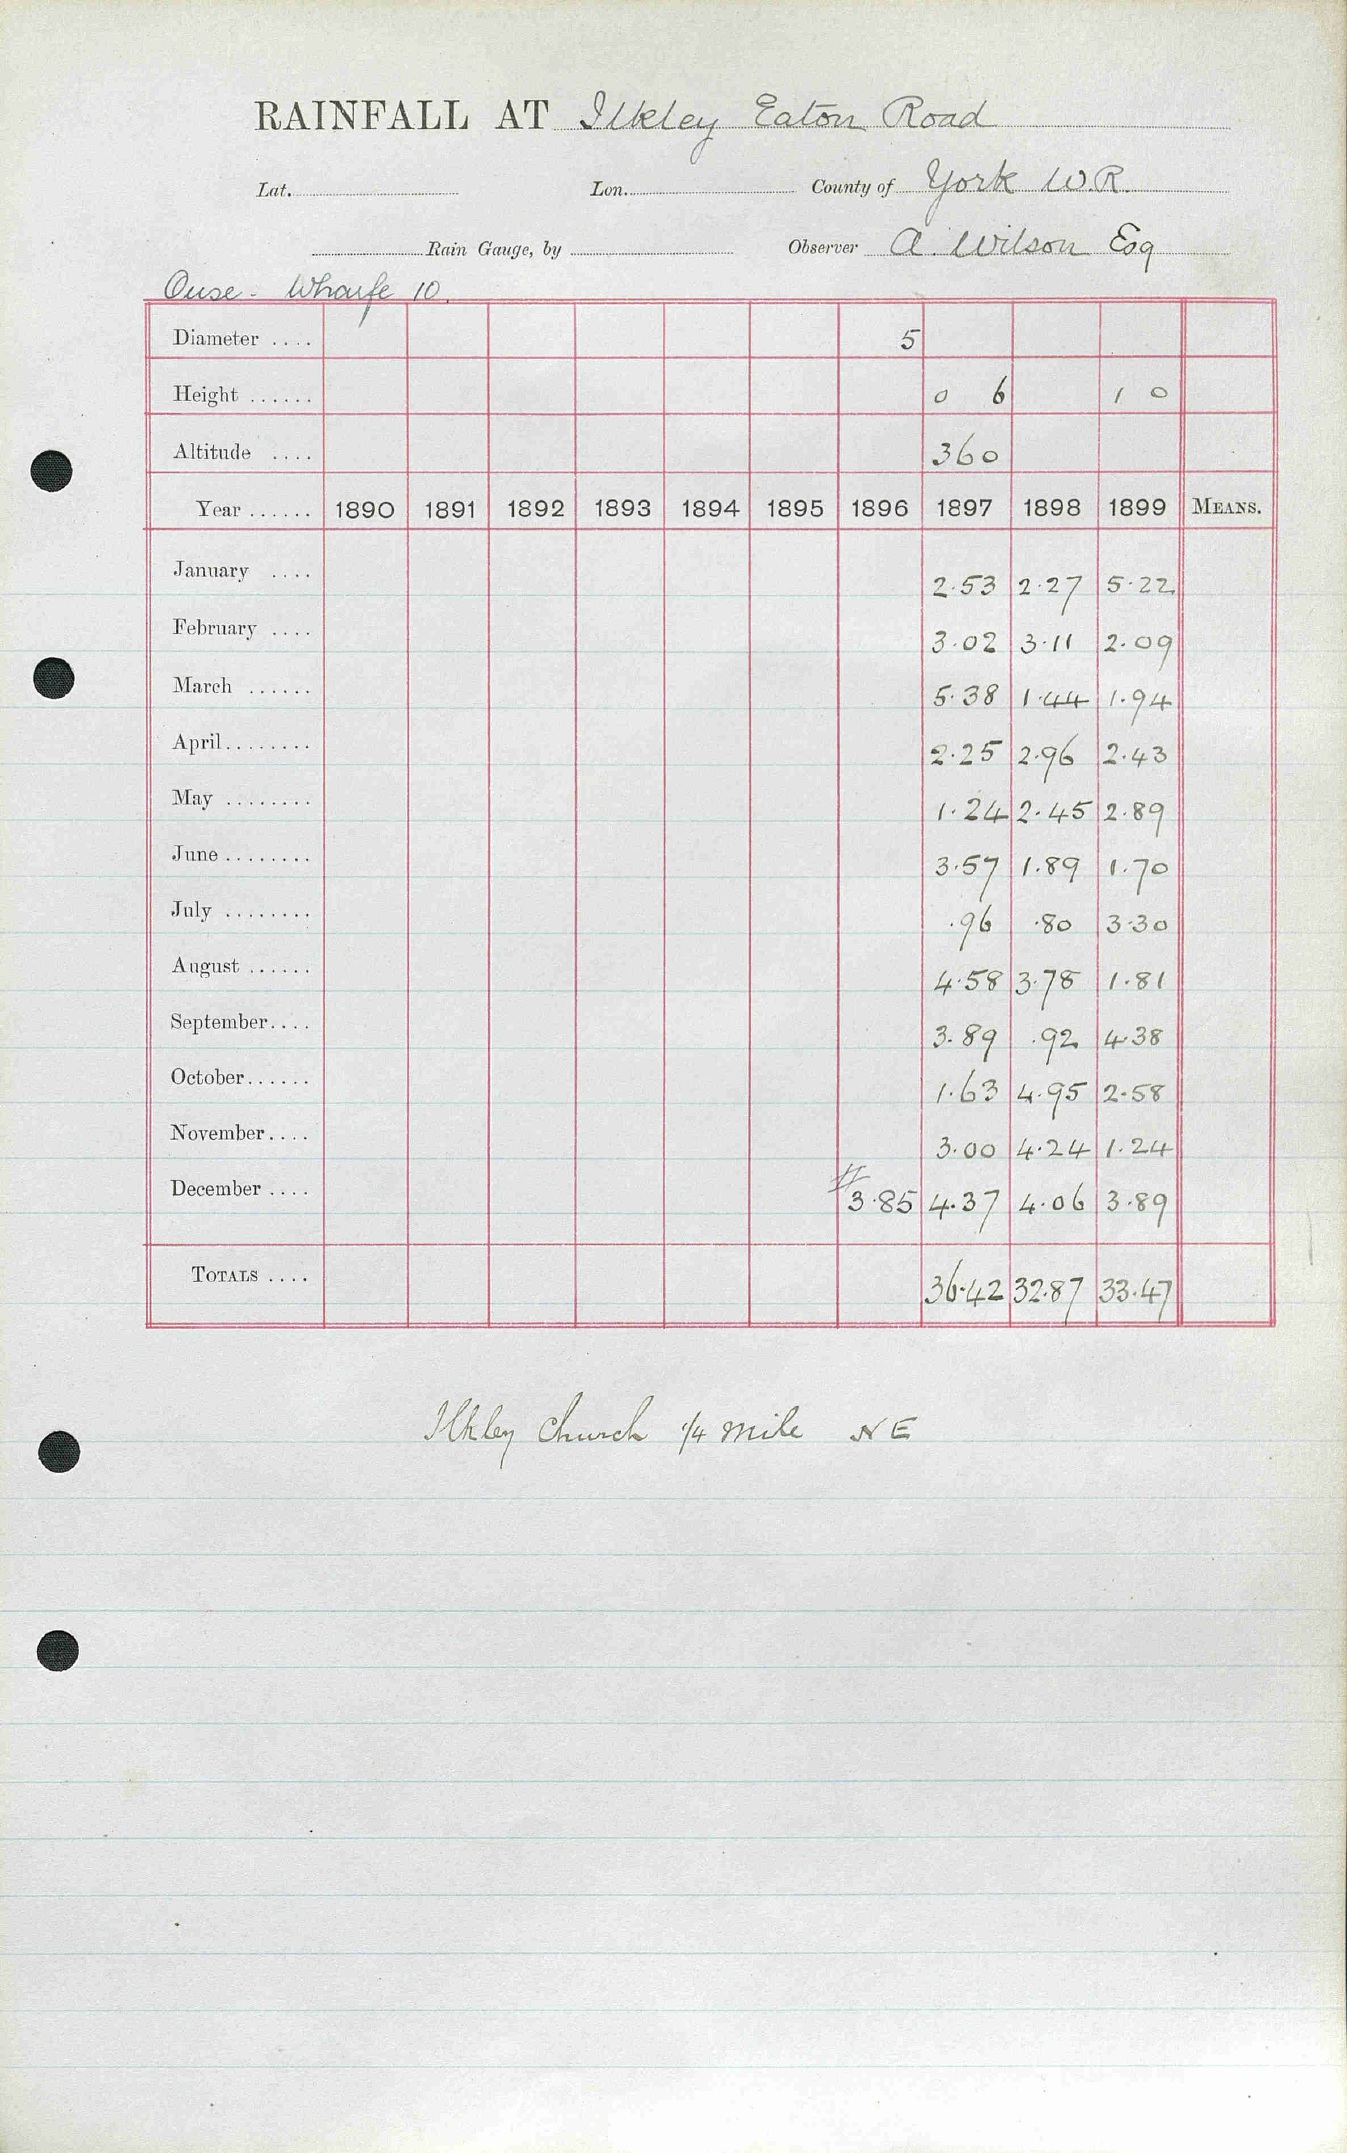 RAINFALL AT Ilkley Eaton Road
Lat. Lon. County of York W.R.
Rain Gauge, by Observer A. Wilson Esq
Ouse - Wharfe 10.
Diameter .... 5
Height ...... 0 6 1 0
Altitude .... 360
Year ...... 1890 1891 1892 1893 1894 1895 1896 1897 1898 1899 MEANS.
January .... 2.53 2.27 5.22
February .... 3.02 3.11 2.09
March ...... 5.38 1.44 1.94
April........ 2.25 2.96 2.43
May ........ 1.24 2.45 2.89
June ........ 3.57 1.89 1.70
July ........ .96 .80 3.30
August ...... 4.58 3.78 1.81
September.... 3.89 .92 4.38
October...... 1.63 4.95 2.58
November.... 3.00 4.24 1.24
December .... # 3.85 4.37 4.06 3.89
TOTALS .... 36.42 32.87 33.47
Ilkley Church 1/4 mile NE